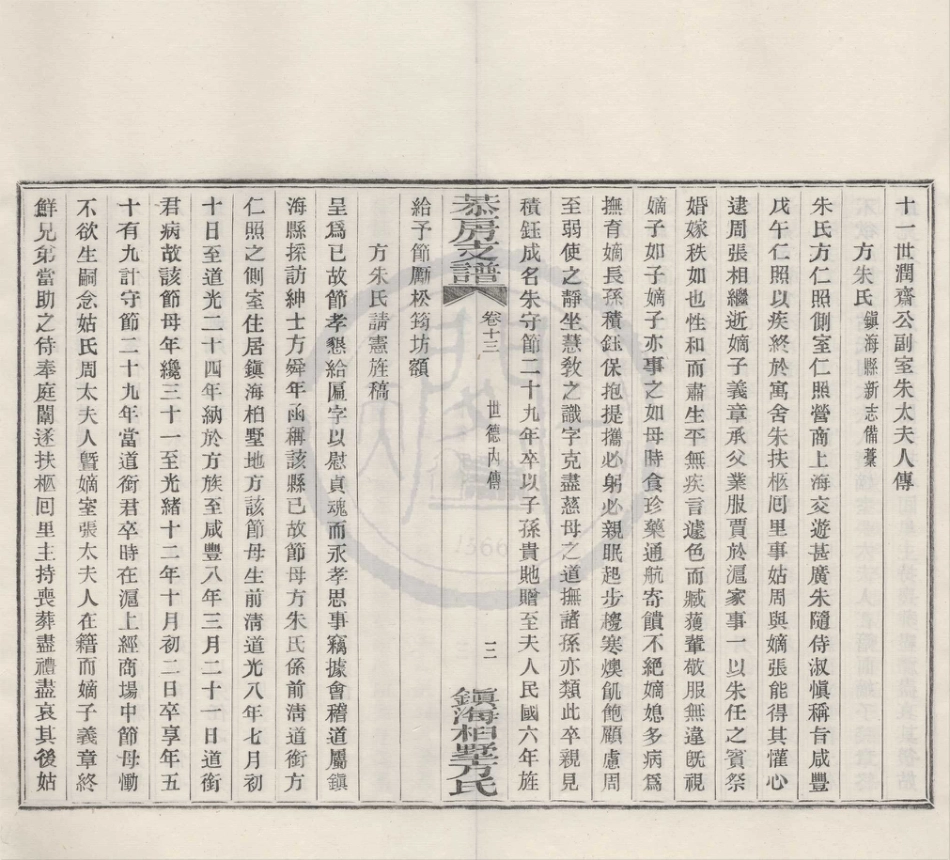 十一世潤齋公副室朱太夫人傳
方朱氏 鎮海縣新志備藁
朱氏方仁照側室仁照營商上海交遊甚廣朱隨侍淑慎稱旨咸豐
戊午仁照以疾終於寓舍朱扶柩囘里事姑周與嫡張能得其懽心
逮周張相繼逝嫡子義章承父業服賈於滬家事一以朱任之賓祭
婚嫁秩如也性和而肅生平無疾言遽色而臧獲輩敬服無違旣視
嫡子如子嫡子亦事之如母時食珍藥通航寄饋不絕嫡媳多病爲
撫育嫡長孫積鈺保抱提攜必躬必親眠起步櫻寒燠飢飽顧慮周
至弱使之靜坐慧敎之識字克盡慈母之道撫諸孫亦類此卒親見
積鈺成名朱守節二十九年卒以子孫貴貤贈至夫人民國六年旌
給予節勵松筠坊額
恭房支譜 卷十三 世德內傳 三 鎮海柏墅方氏
方朱氏請憲旌稿
呈爲已故節孝懇給匾字以慰貞魂而永孝思事竊據會稽道屬鎮
海縣採訪紳士方舜年函稱該縣已故節母方朱氏係前清道銜方
仁照之側室住居鎮海柏墅地方該節母生前清道光八年七月初
十日至道光二十四年納於方族至咸豐八年三月二十一日道銜
君病故該節母年纔三十一至光緒十二年十月初二日卒享年五
十有九計守節二十九年當道銜君卒時在滬上經商場中節母慟
不欲生嗣念姑氏周太夫人曁嫡室張太夫人在籍而嫡子義章終
鮮兄弟當助之侍奉庭闈遂扶柩囘里主持喪葬盡禮盡哀其後姑